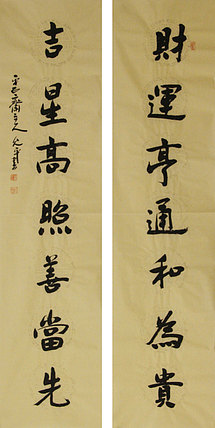 財運亨通和為貴
吉星高照善當先